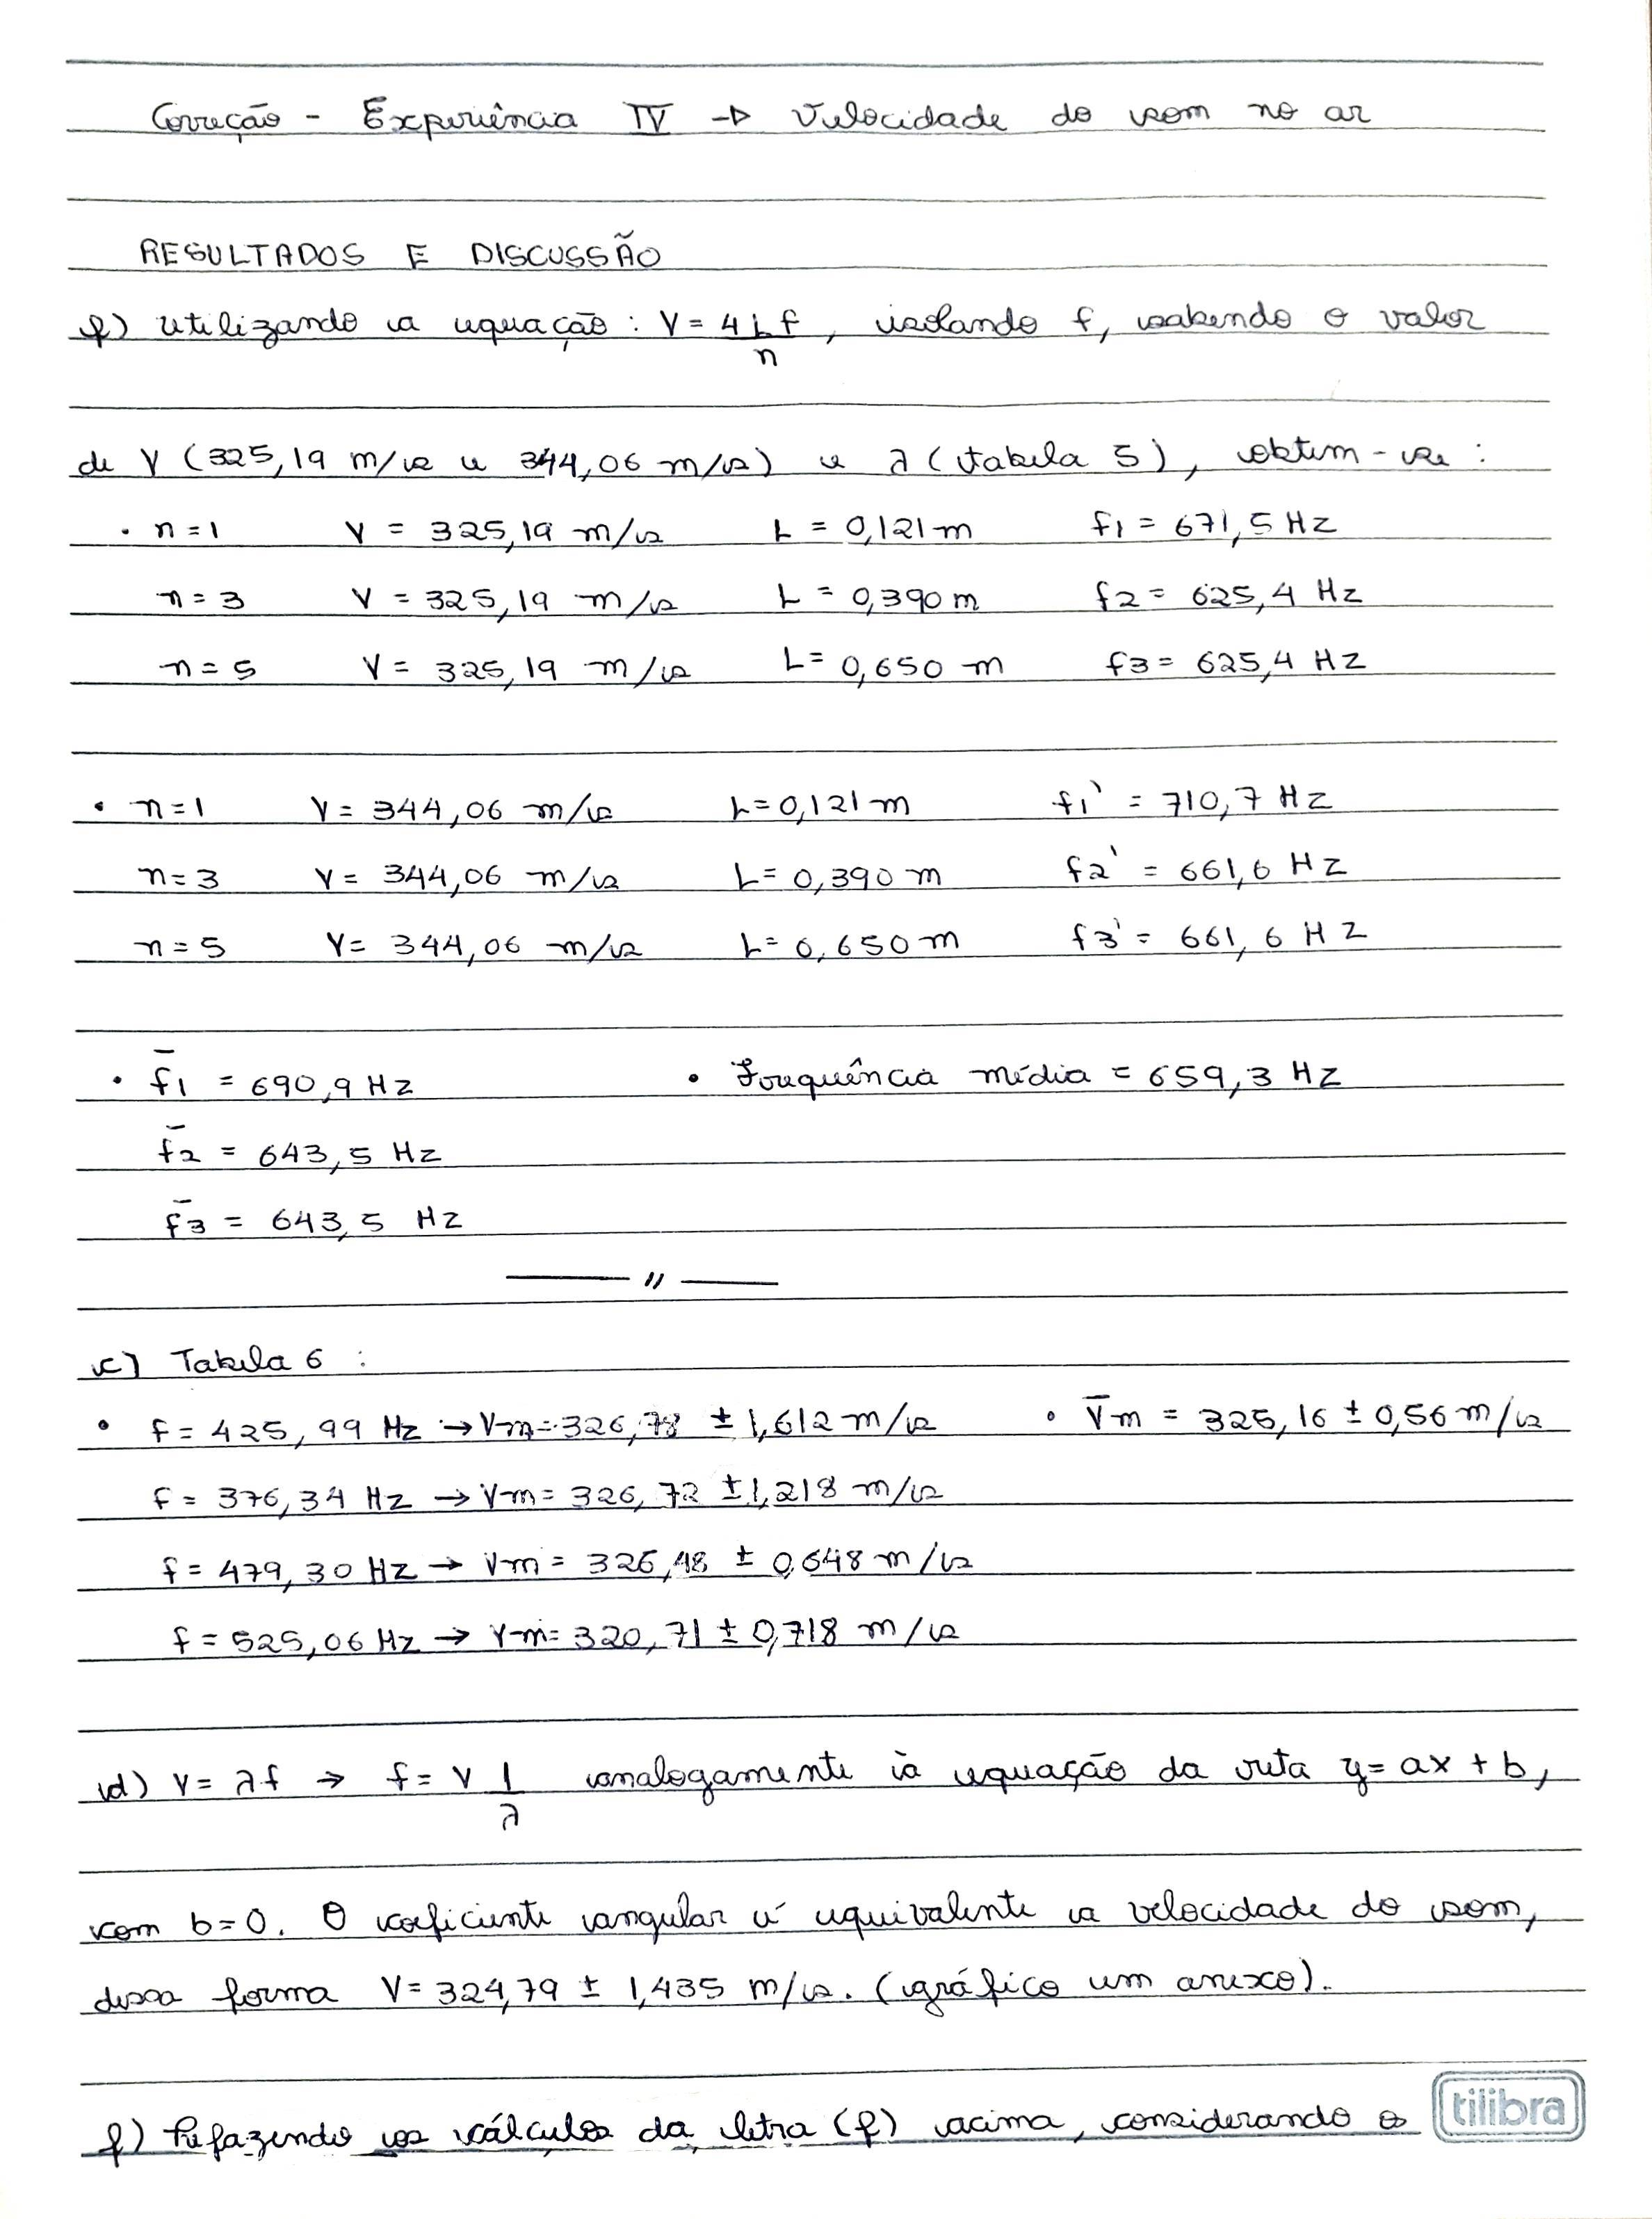 Correção - Experiência IV → Velocidade do som no ar
RESULTADOS E DISCUSSÃO
f) Utilizando a equação: V = 4Lf/n, isolando f, sabendo o valor
de V (325,19 m/s e 344,06 m/s) e λ (tabela 5), obtem-se:
• n=1 V = 325,19 m/s L = 0,121 m f1 = 671,5 Hz
n=3 V = 325,19 m/s L = 0,390 m f2 = 625,4 Hz
n=5 V = 325,19 m/s L = 0,650 m f3 = 625,4 Hz
• n=1 V = 344,06 m/s L = 0,121 m f1' = 710,7 Hz
n=3 V = 344,06 m/s L = 0,390 m f2' = 661,6 Hz
n=5 V = 344,06 m/s L = 0,650 m f3' = 661,6 Hz
• f̄1 = 690,9 Hz • Frequência média = 659,3 Hz
f̄2 = 643,5 Hz
f̄3 = 643,5 Hz
—— // ——
c) Tabela 6 :
• f = 425,99 Hz → Vm = 326,78 ± 1,612 m/s • V̄m = 325,16 ± 0,56 m/s
f = 376,34 Hz → Vm = 326,72 ± 1,218 m/s
f = 479,30 Hz → Vm = 326,48 ± 0,648 m/s
f = 525,06 Hz → Vm = 320,71 ± 0,718 m/s
d) V = λf → f = V 1/λ analogamente à equação da reta y = ax + b,
com b=0. O coeficiente angular é equivalente a velocidade do som,
dessa forma V = 324,79 ± 1,435 m/s. (gráfico em anexo).
f) Refazendo os cálculos da letra (f) acima, considerando o
tilibra